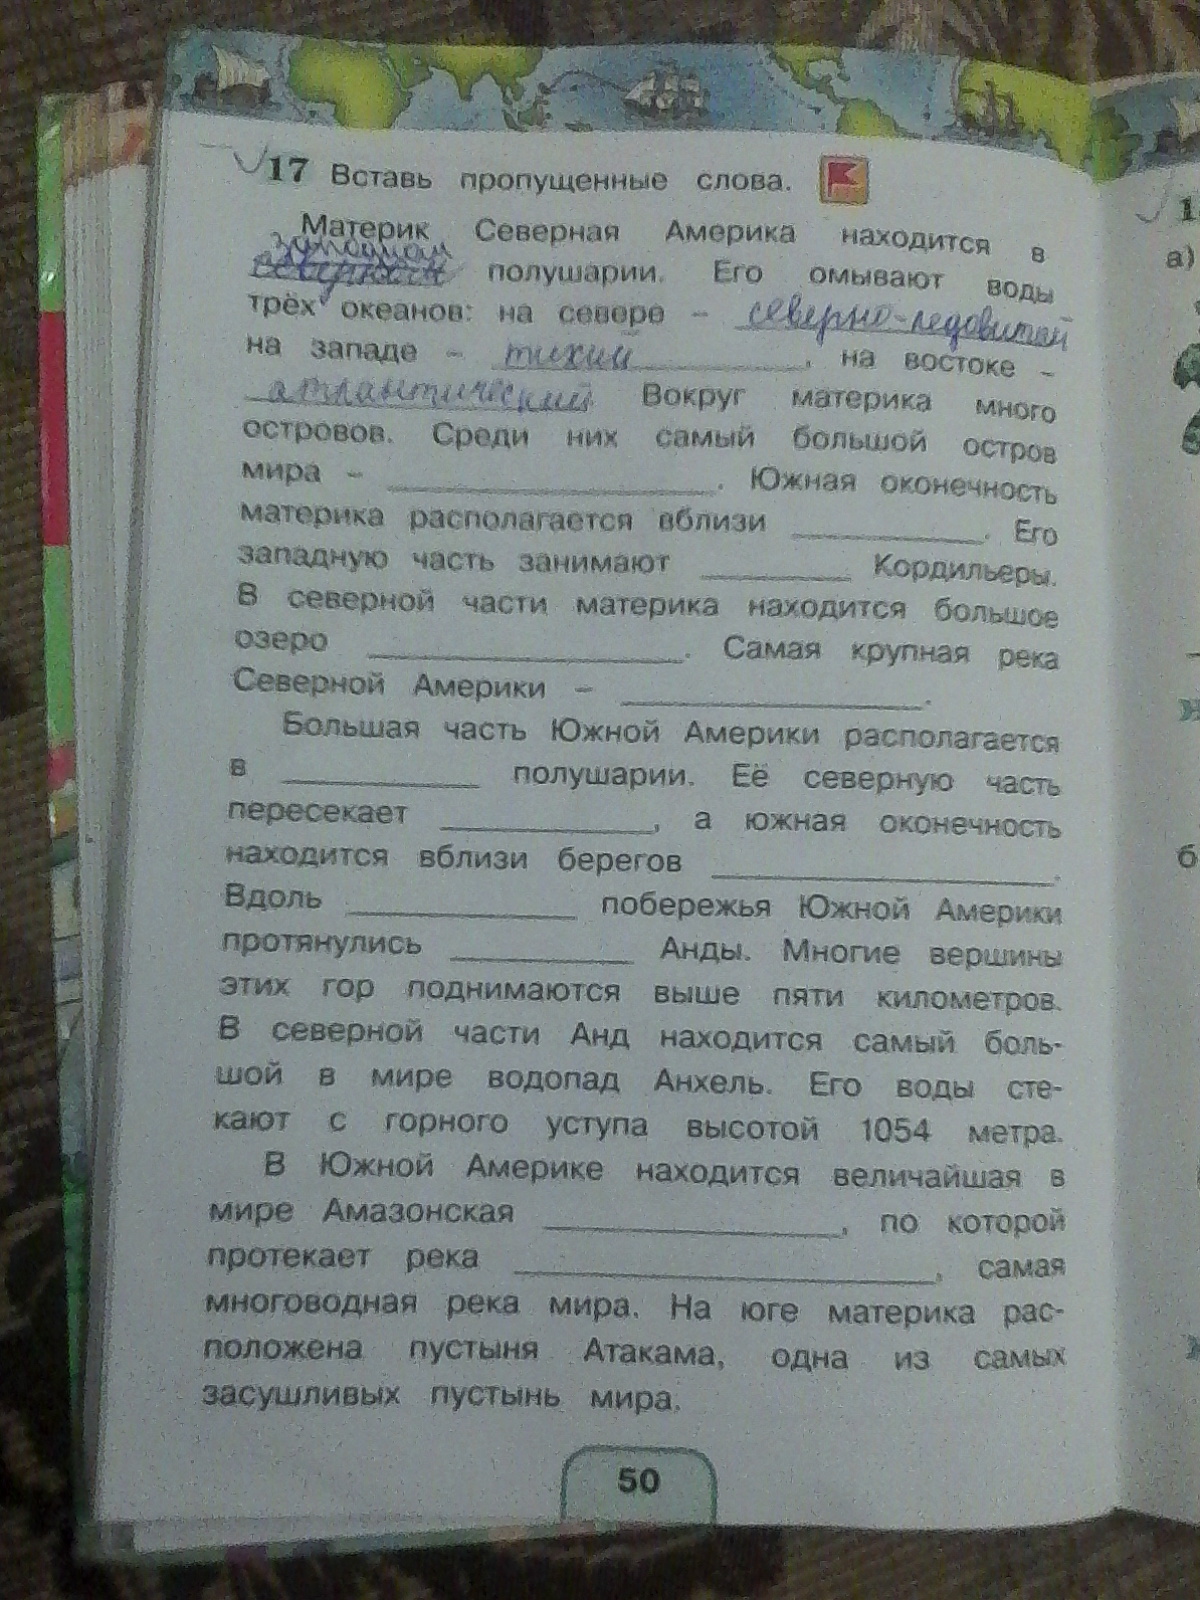 17 Вставь пропущенные слова.
Материк Северная Америка находится в
западном
северном полушарии. Его омывают воды
трёх океанов: на севере – северно-ледовитый
на западе – тихий, на востоке –
атлантический Вокруг материка много
островов. Среди них самый большой остров
мира – . Южная оконечность
материка располагается вблизи . Его
западную часть занимают Кордильеры.
В северной части материка находится большое
озеро . Самая крупная река
Северной Америки – .
Большая часть Южной Америки располагается
в полушарии. Её северную часть
пересекает , а южная оконечность
находится вблизи берегов .
Вдоль побережья Южной Америки
протянулись Анды. Многие вершины
этих гор поднимаются выше пяти километров.
В северной части Анд находится самый боль-
шой в мире водопад Анхель. Его воды сте-
кают с горного уступа высотой 1054 метра.
В Южной Америке находится величайшая в
мире Амазонская , по которой
протекает река , самая
многоводная река мира. На юге материка рас-
положена пустыня Атакама, одна из самых
засушливых пустынь мира.
50
1
а)
б